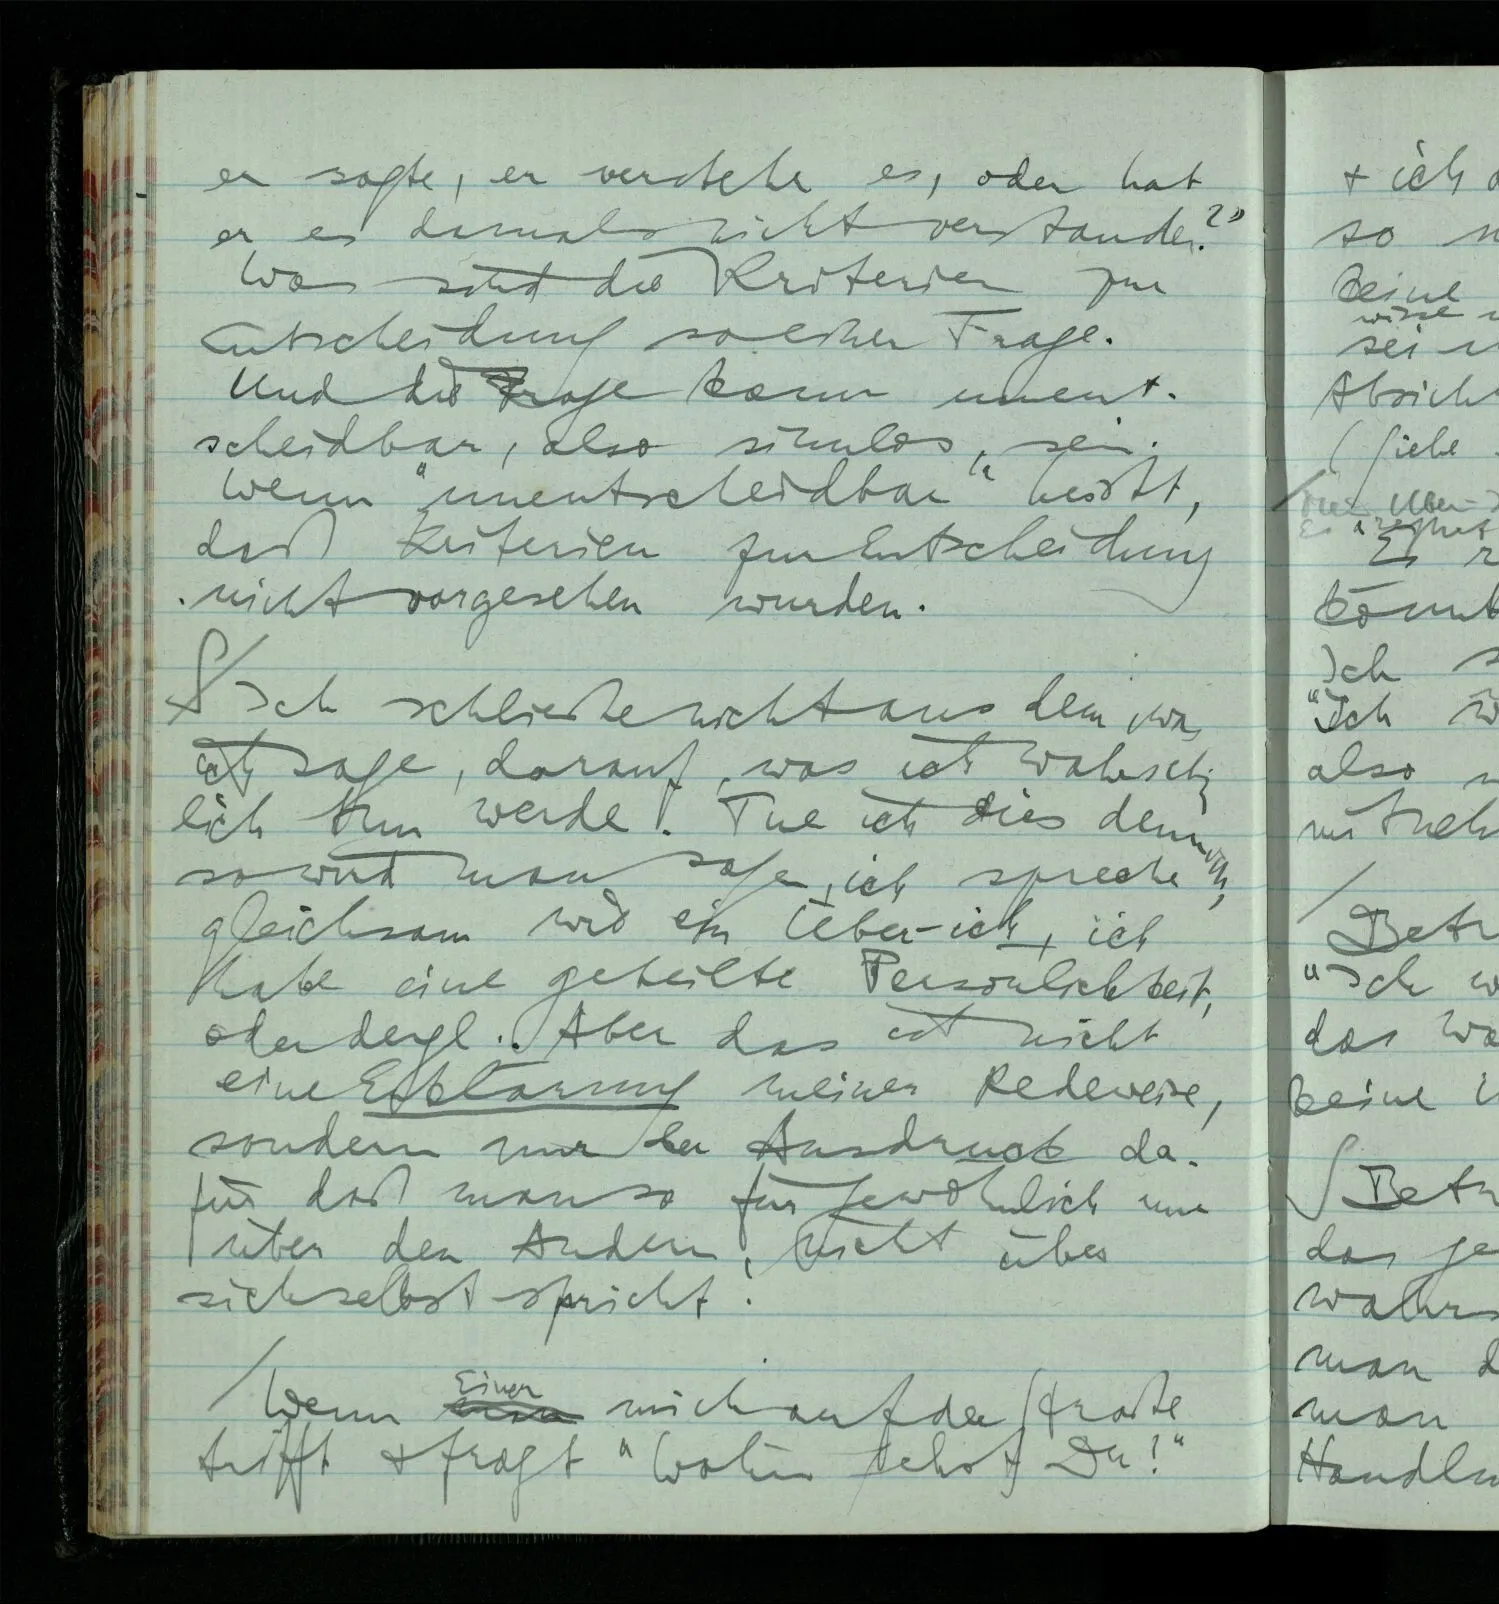 er sagte, er verstehe es, oder hat
er es damals nicht verstanden?"
Was sind die Kriterien zur
Entscheidung solcher Frage.
Und die Frage kann unent-
scheidbar, also sinnlos, sein.
Wenn "unentscheidbar" heißt,
daß Kriterien zur Entscheidung
nicht vorgesehen wurden.
∫ / Ich schließe nicht aus dem, was
ich sage, darauf, was ich wahrschein
lich tun werde. Tue ich dies dennoch,
so wird man sagen, ich spreche
gleichsam wie ein Über-ich, ich
habe eine geteilte Persönlichkeit,
oder dergl.. Aber das ist nicht
eine Erklärung meiner Redeweise,
sondern nur der Ausdruck da-
für daß man so für gewöhnlich nur
über den Andern, nicht über
sich selbst spricht.
/ Wenn Einer mich auf der Straße
trifft & fragt "Wohin gehst Du?"
+ ich
so
keine
wisse
sei
Absich
(siehe
Über-
Es regnet
Es r
könnt
Ich s
"Ich w
also
/
Betr
"Ich w
das Wo
keine i
∫ Betr
das ge
wahrs
man d
man
Handlu